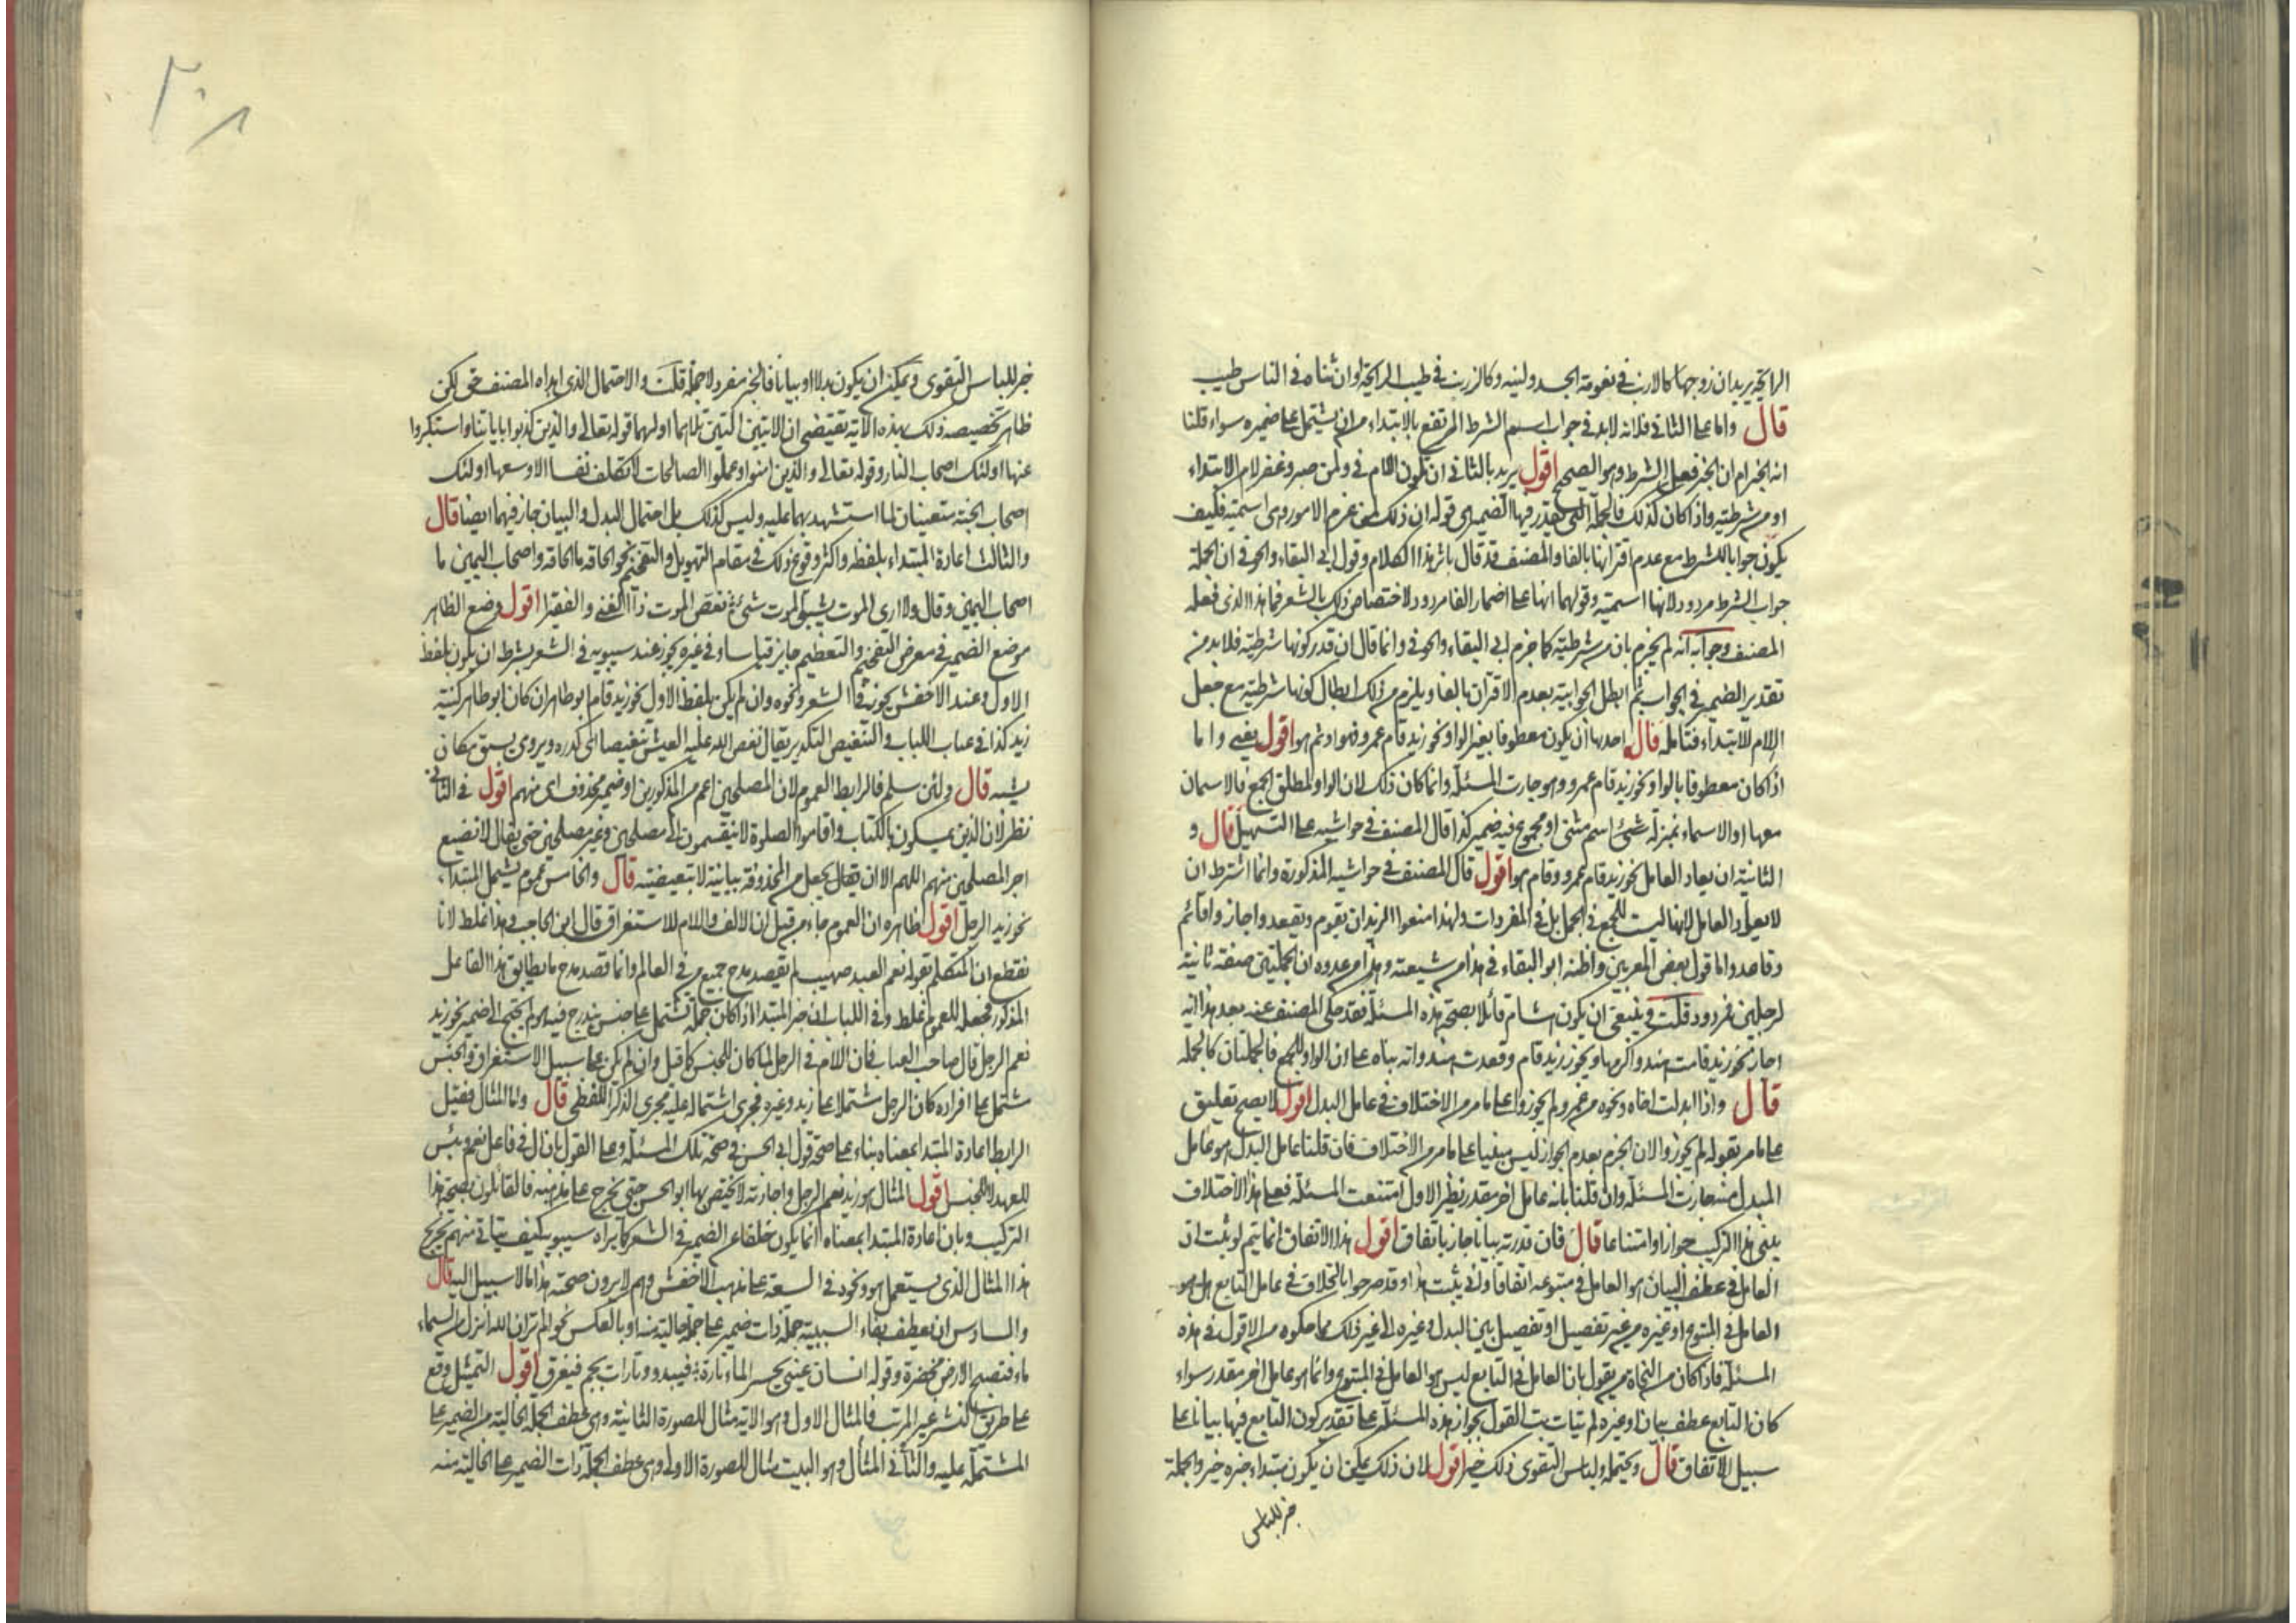 الرايحة يريد ان زوجها كالارنب في نعومة الجسد ولينه وكالزرنب في طيب الرايحة او ان ثناه في الناس طيب
قال واما على الثاني فلانه لابد في جواب اسم الشرط المرتفع بالابتداء من ان يشتمل على ضميره سواء قلنا
انه الخبر ام ان الخبر فعل الشرط وهو الصحيح اقول يريد بالثاني ان تكون اللام في ولمن صبر وغفر لام الابتداء
او من شرطية واذا كان كذلك فالجملة التي يقدر فيها الضمير هي قوله ان ذلك لمن عزم الامور وهي اسمية فكيف
يكون جوابا للشرط مع عدم اقترانها بالفا والمصنف قد قال باثر هذا الكلام وقول ابي البقاء والحوفي ان الجملة
جواب الشرط مردود لانها اسمية وقولهما انها على اضمار الفا مردود لاختصاص ذلك بالشعر فما هذا الذي فعله
المصنف وجوابه انه لم يجزم بان من شرطية كما جزم ابي البقاء والحوفي وانما قال ان قدر كونها شرطية فلا بد من
تقدير الضمير في الجواب ثم ابطل الجوابية بعدم الاقتران بالفا ويلزم من ذلك ابطال كونها شرطية مع جعل
اللام للابتداء فتامله قال احدها ان يكون معطوفا بغير الواو نحو زيد قام عمرو فهو او ثم هو اقول يعني واما
اذا كان معطوفا بالواو نحو زيد قام عمرو وهو جازت المسئلة وانما كان ذلك لان الواو لمطلق الجمع فالاسمان
معها او الاسماء بمنزلة شئ اسم مثنى او مجموع فيه ضمير كذا قال المصنف في حواشيه على التسهيل قال و
الثانية ان يعاد العامل نحو زيد قام عمرو وقام هو اقول قال المصنف في حواشيه المذكورة وانما اشترط ان
لا يعاد العامل لانها ليست للجمع في الجمل بل في المفردات ولهذا منعوا الزيدان يقوم ويقعد واجازوا قائم
وقاعد واما قول بعض المعربين واظنه ابو البقاء في هذا من شيعته وهذا من عدوه ان الجملتين صفة ثانية
لرجلين فمردود قلت وينبغي ان يكون هشام قائلا بصحة هذه المسئلة فقد حكى المصنف عنه بعد هذا انه
اجاز نحو زيد قامت هند واكرمها ويجوز زيد قام وقعدت هند وانه بناه على ان الواو للجمع فالجملتان كالجملة
قال واذا ابدلت اخاه ونحوه من عمرو لم يجوزوا على ما مر من الاختلاف في عامل البدل اقول لا يصح تعليق
على ما مر بقوله لم يجوزوا لان الجزم بعدم الجواز ليس مبنيا على ما مر من الاختلاف فان قلنا عامل البدل هو عامل
المبدل منه جازت المسئلة وان قلنا بانه عامل اخر مقدر نظير الاول امتنعت المسئلة فعلى هذا الاختلاف
ينبني هذا التركيب جوازا وامتناعا قال فان قدرته بيانا جاز باتفاق اقول هذا الاتفاق انما يتم لو ثبت ان
العامل في عطف البيان هو العامل في متبوعه اتفاقا ولم يثبت هذا وقد صرحوا بالخلاف في عامل التابع هل هو
العامل في المتبوع او غيره من غير تفصيل او تفصيل بين البدل وغيره الى غير ذلك مما حكوه من الاقوال في هذه
المسئلة فاذا كان من النحاة من يقول بان العامل في التابع ليس هو العامل في المتبوع وانما هو عامل اخر مقدر سواء
كان التابع عطف بيان او غيره لم يتات بت القول بجواز هذه المسئلة على تقدير كون التابع فيها بيانا على
سبيل الاتفاق قال ويحتمله ولباس التقوى ذلك خير اقول لان ذلك يمكن ان يكون مبتداء خبره خير والجملة
خبر للباس
٣٠٨
خبر للباس التقوى ويمكن ان يكون بدلا او بيانا فالخبر مفرد لا جملة قلت والاحتمال الذي ابداه المصنف حق لكن
ظاهر تخصيصه ذلك بهذه الاية يقتضي ان الايتين اللتين تلاهما اولهما قوله تعالى والذين كذبوا باياتنا واستكبروا
عنها اولئك اصحاب النار وقوله تعالى والذين امنوا وعملوا الصالحات لا نكلف نفسا الا وسعها اولئك
اصحاب الجنة متعينان لما استشهد بهما عليه وليس كذلك بل احتمال البدل والبيان جاز فيهما ايضا قال
والثالث اعادة المبتداء بلفظه واكثر وقوع ذلك في مقام التهويل والتفخيم نحو الحاقة ما الحاقة واصحاب اليمين ما
اصحاب اليمين وقال ولا ارى الموت يسبق الموت شئ نغص الموت ذا الغنى والفقيرا اقول وضع الظاهر
موضع الضمير في معرض التفخيم والتعظيم جايز قياسا وفي غيره يجوز عند سيبويه في الشعر بشرط ان يكون بلفظ
الاول وعند الاخفش يجوز في الشعر ونحوه وان لم يكن بلفظ الاول نحو زيد قام ابو طاهر ان كان ابو طاهر كنية
زيد كذا في عباب اللباب والتنغيص التكدير يقال نغص الله عليه العيش تنغيصا اي كدره ويروى يسبق مكان
يشبه قال ولئن سلم فالرابط العموم لان المصلحين اعم من المذكورين او ضمير محذوف اي منهم اقول في الثاني
نظر لان الذين يمسكون بالكتاب واقاموا الصلوة لا ينقسمون الى مصلحين وغير مصلحين حتى يقال لا نضيع
اجر المصلحين منهم اللهم الا ان يقال يجعل من المحذوفة بيانية لا تبعيضية قال والخامس عموم يشمل المبتداء
نحو زيد الرجل اقول ظاهره ان العموم جاء من قبل ان الالف واللام للاستغراق قال ابن الحاجب وهذا غلط لانا
نقطع ان المتكلم بقوله نعم العبد صهيب لم يقصد مدح جميع من في العالم وانما قصد مدح ما يطابق هذا الفاعل
المذكور فجعله للعموم غلط وفي اللباب ان خبر المبتدا اذا كان جملة تشتمل على جنس يندرج فيه هو لم يحتج الى ضمير نحو زيد
نعم الرجل قال صاحب العباب فان اللام في الرجل لما كان للجنس كما قيل وان لم يكن على سبيل الاستغراق والجنس
مشتمل على افراده كان الرجل مشتملا على زيد وغيره فجرى اشتماله عليه مجرى الذكر اللفظي قال واما المثال فقيل
الرابط اعادة المبتدا بمعناه بناء على صحة قول ابي الحسن في صحة تلك المسئلة وعلى القول بان ال في فاعل نعم وبئس
للعهد لا للجنس اقول المثال هو زيد نعم الرجل واجازته لا يختص بها ابو الحسن حتى يخرج على مذهبه فالقائلون بصحة هذا
التركيب وبان اعادة المبتدا بمعناه انما يكون خلفا عن الضمير في الشعر كما يراه سيبويه كيف يتاتى منهم تخريج
هذا المثال الذي يستعمل هو ونحوه في السعة على مذهب الاخفش وهم لا يرون صحته هذا ما لا سبيل اليه قال
والسادس ان يعطف بفاء السببية جملة ذات ضمير على جملة خالية منه او بالعكس نحو الم تر ان الله انزل من السماء
ماء فتصبح الارض مخضرة وقوله انسان عيني يحسر الماء تارة فيبدو وتارات يجم فيغرق اقول التمثيل وقع
على طريق النشر غير المرتب فالمثال الاول وهو الاية مثال للصورة الثانية وهي عطف الجملة الخالية من الضمير على
المشتملة عليه والثاني المثال وهو البيت مثال للصورة الاولى وهي عطف الجملة ذات الضمير على الخالية منه